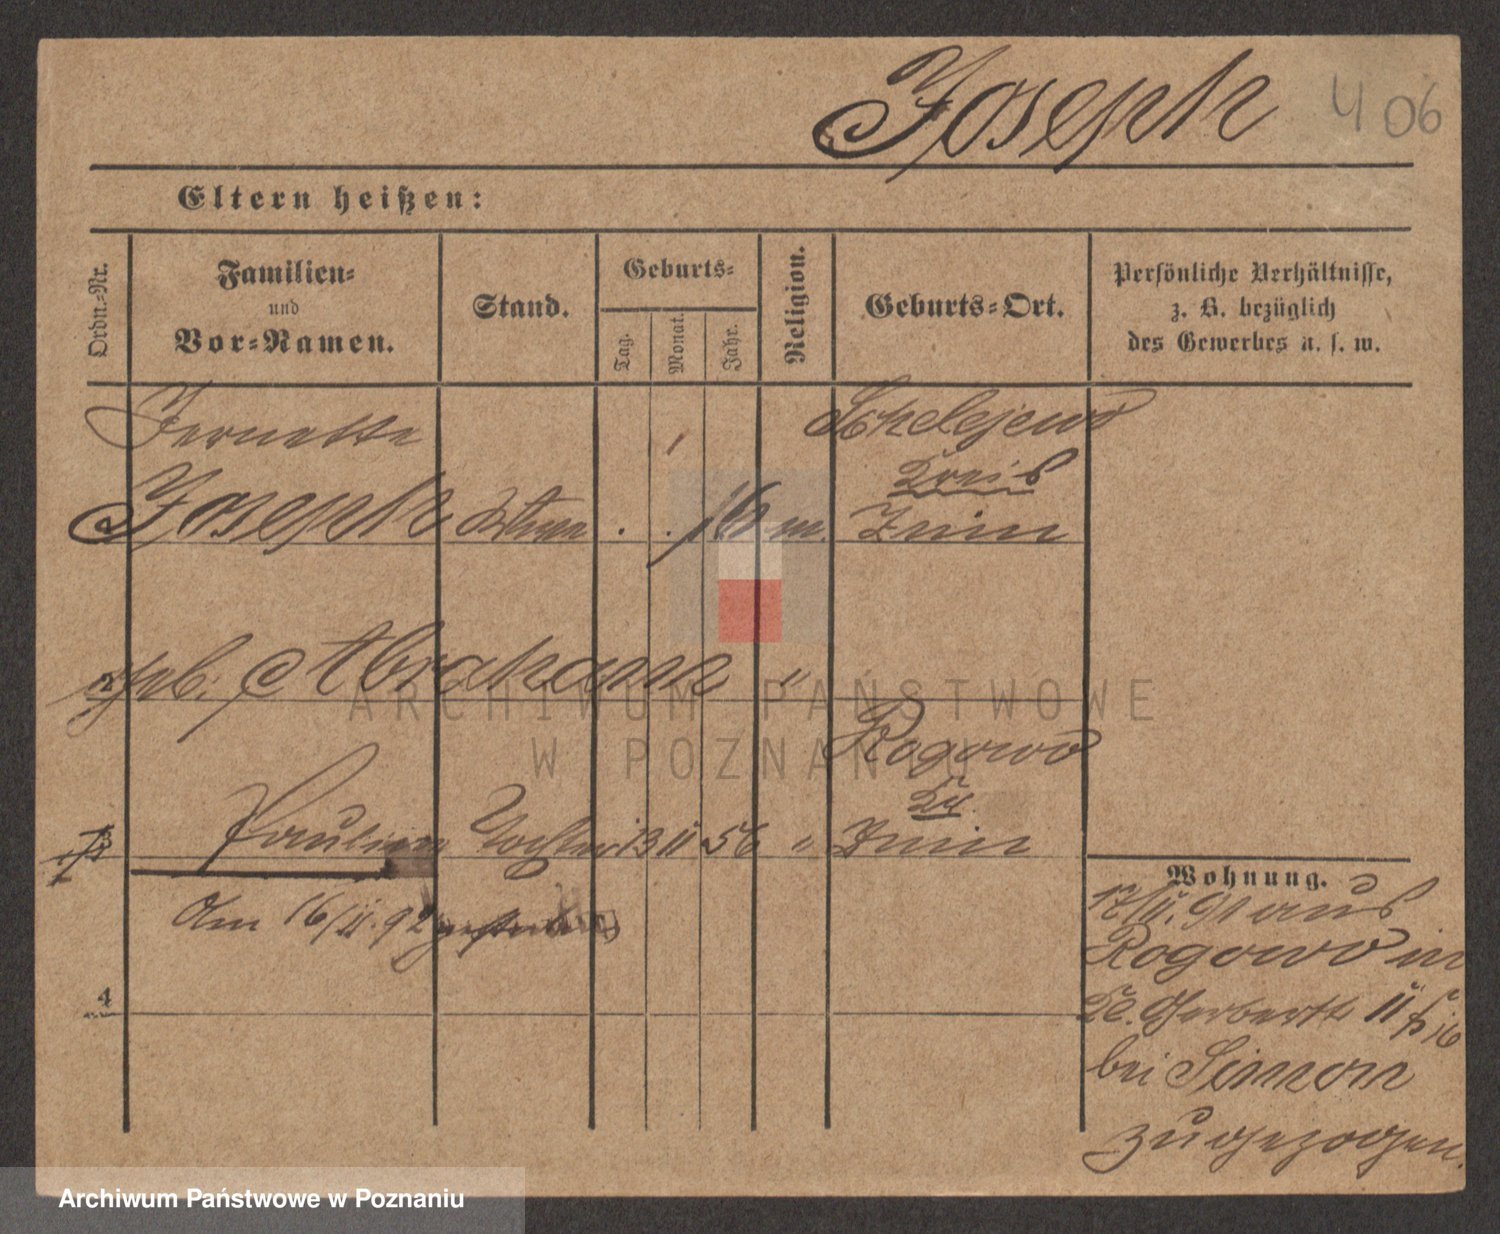 Joseph 406
Eltern heißen:
Ordn.-Nr.
Familien-
und
Vor-Namen.
Stand.
Geburts-
Tag.
Monat.
Jahr.
Religion.
Geburts-Ort.
Persönliche Verhältnisse,
z. B. bezüglich
des Gewerbes u. s. w.
Jernette
Joseph
16 m.
Schelejewo
Kreis
Znin
2 geb. Abraham "
3 Pauline Tochter 13 11 56 "
Rogowo
Kr.
Znin
Am 16/11. 92 gestorben
4
Wohnung.
12/11. 91 aus
Rogowo in
Kl. Gerberstr 11
bei Simon
zugezogen.
ARCHIWUM PAŃSTWOWE
W POZNANIU
Archiwum Państwowe w Poznaniu